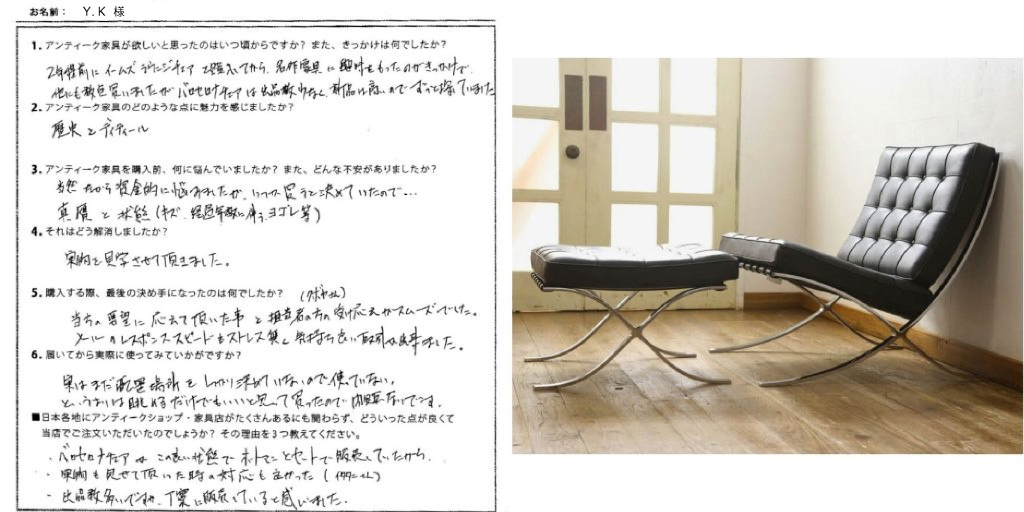 お名前： Y.K 様
1. アンティーク家具が欲しいと思ったのはいつ頃からですか？ また、きっかけは何でしたか？
2年程前にイームズラウンジチェアを購入してから、名作家具に興味をもったのがきっかけで
他にも数点買いましたがバルセロナチェアは出品数少なく、新品は高いのでずっと探していました
2. アンティーク家具のどのような点に魅力を感じましたか？
歴史とディティール
3. アンティーク家具を購入前、何に悩んでいましたか？ また、どんな不安がありましたか？
当然ながら資金的に悩みましたが、いつか買うと決めていたので…
真贋と状態（キズ、経過年数に伴うヨゴレ等）
4. それはどう解消しましたか？
実物を見学させて頂きました。
5. 購入する際、最後の決め手になったのは何でしたか？
当方の要望に応えて頂いた事と担当者の方の受け応えがスムーズでした。
メールのレスポンススピードもストレス無く気持ち良い取引が出来ました。
6. 届いてから実際に使ってみていかがですか？
実はまだ配置場所をしっかり決めていないので使っていない。
というよりは眺めるだけでもいいと思って買ったので問題なしです。
■日本各地にアンティークショップ・家具店がたくさんあるにも関わらず、どういった点が良くて
当店でご注文いただいたのでしょうか？ その理由を3つ教えてください。
・バルセロナチェアはこの良い状態でオットマンとセットで販売していたから
・実物を見せて頂いた時の対応も良かった
・出品数多いですが、丁寧に販売していると感じました。